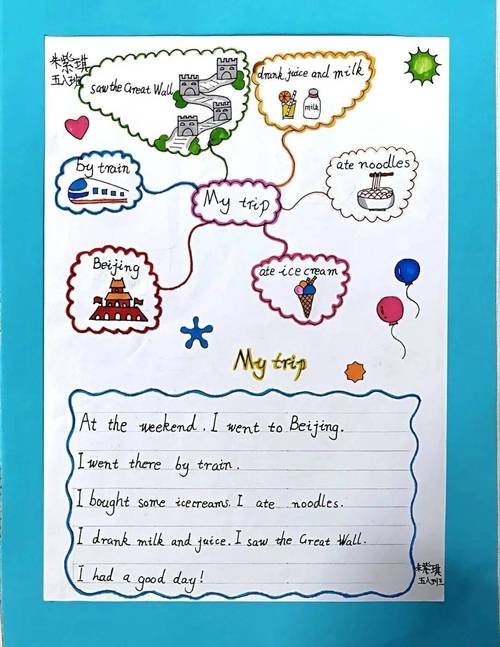 朱紫琪
五八班
saw the Great Wall
drank juice and milk
milk
by train
My trip
ate noodles
Beijing
ate ice cream
My trip
At the weekend. I went to Beijing.
I went there by train.
I bought some icecreams. I ate noodles.
I drank milk and juice. I saw the Great Wall.
I had a good day!
朱紫琪
五八班